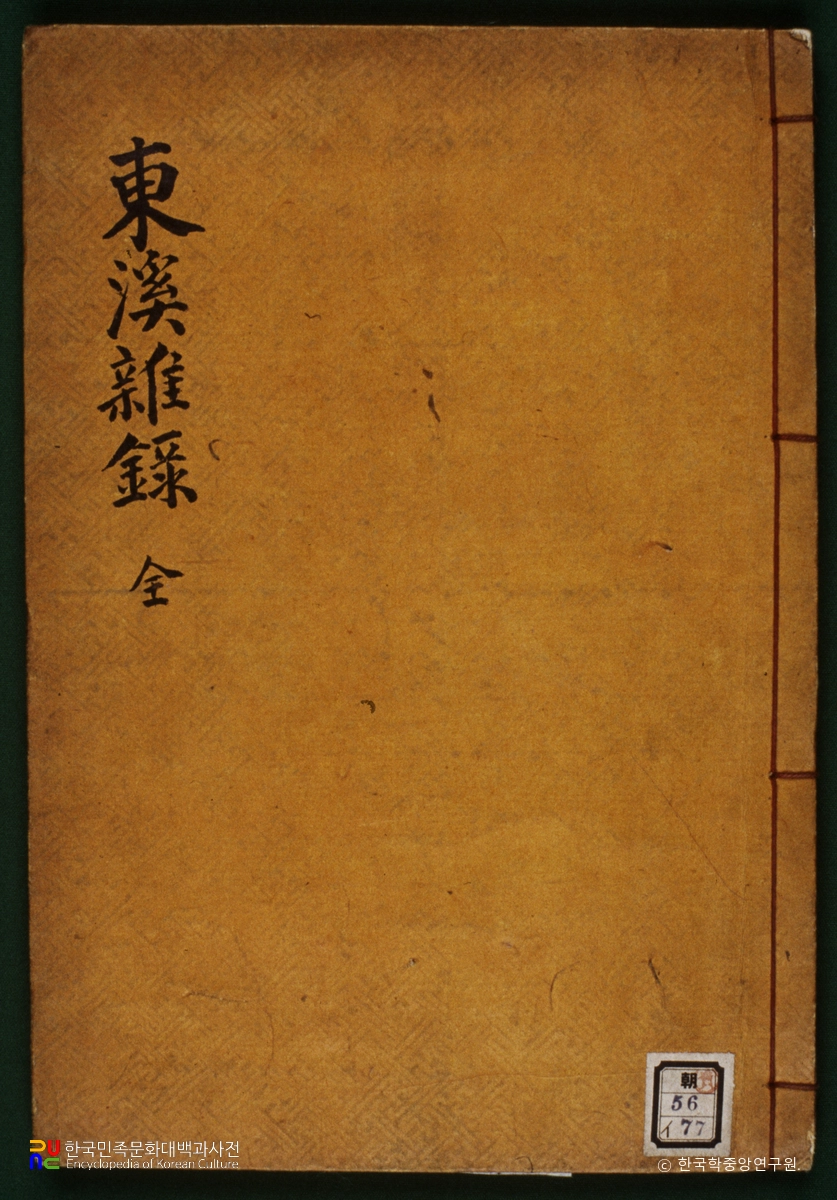 東溪雜錄 全
朝
56
イ77
한국민족문화대백과사전
Encyclopedia of Korean Culture
© 한국학중앙연구원